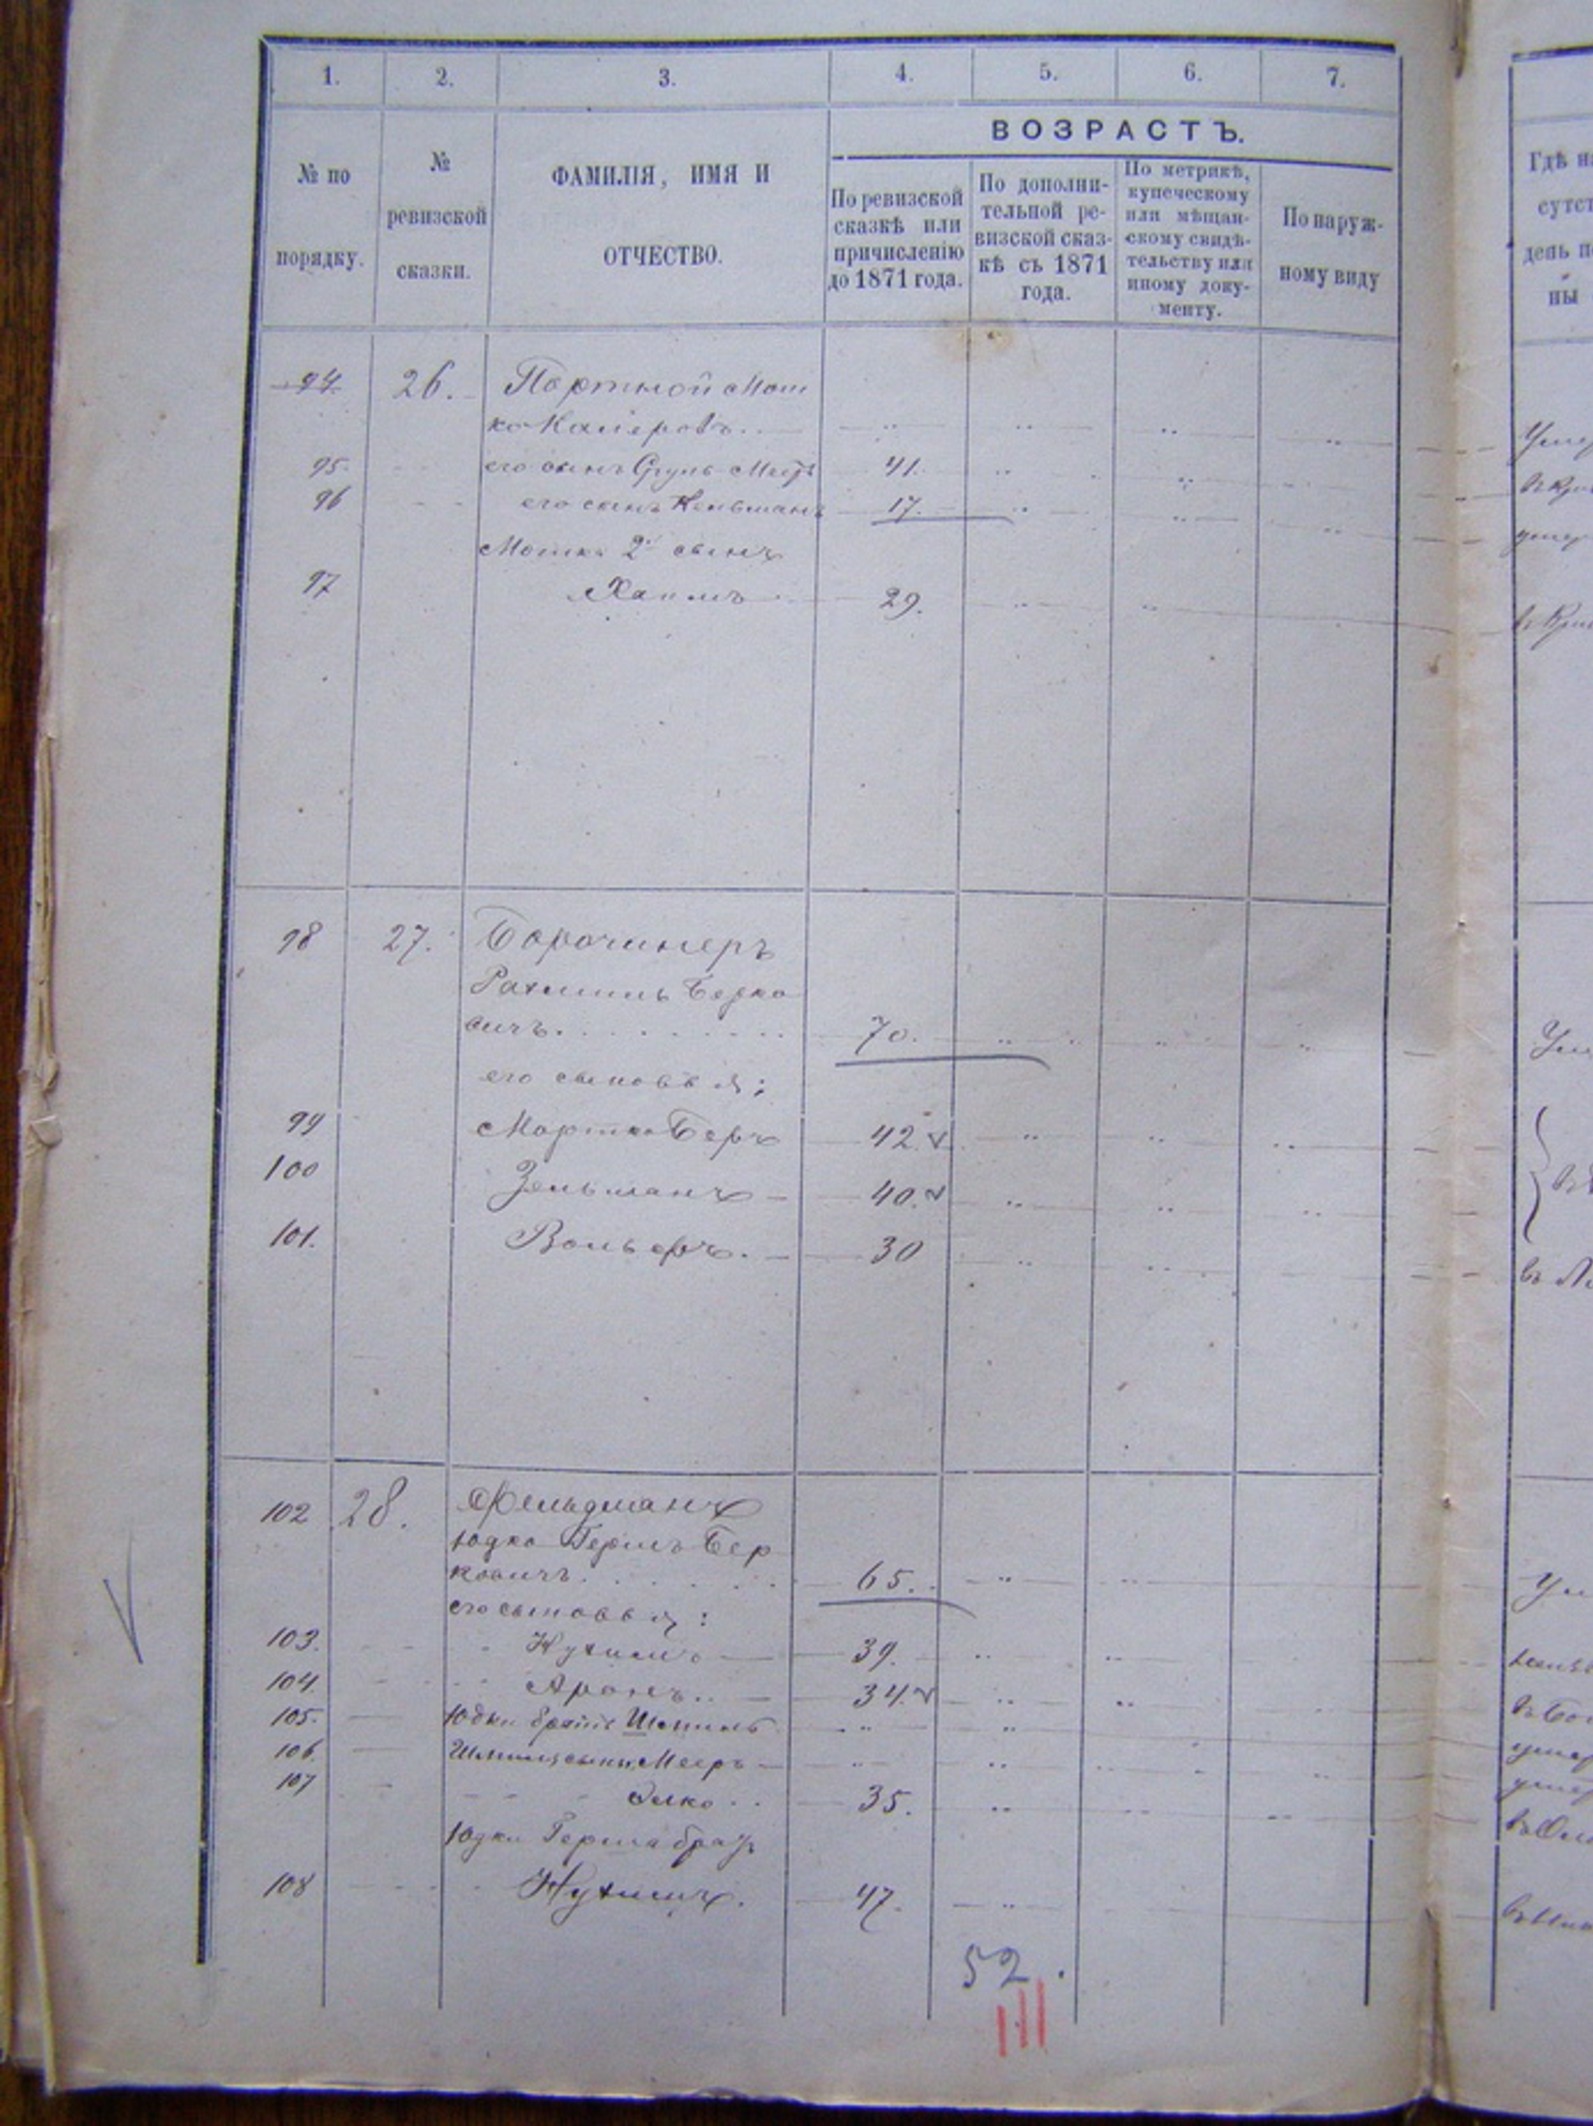 1. 2. 3. 4. 5. 6. 7.
№ по порядку.
№ ревизской сказки.
ФАМИЛІЯ, ИМЯ И ОТЧЕСТВО.
ВОЗРАСТЪ.
По ревизской сказкѣ или причисленію до 1871 года.
По дополнительной ревизской сказкѣ съ 1871 года.
По метрикѣ, купеческому или мѣщанскому свидѣтельству или иному документу.
По наружному виду
94. 26. Портной Мош
ко
95. его сынъ Меер 41.
96 его сынъ Кельманъ 17.
Мошка 2й сынъ
97 Хаимъ 29.
98 27. Борочинеръ
Рахмиль Берко
вичъ. 70.
его сыновья:
99 Мортко Беръ 42. v
100 Зельманъ 40. v
101. Вольфъ. 30
102 28. Фельдманъ
Юдко Гершъ Бер
ковичъ. 65.
его сыновья:
103. Нухимъ 39.
104. Аронъ. 34. v
105. Юдки братъ Шмиль
106. Шмиля сынъ Мееръ
107 Элко 35.
Юдки Герша братъ
108 Нухимъ. 47.
52.
III